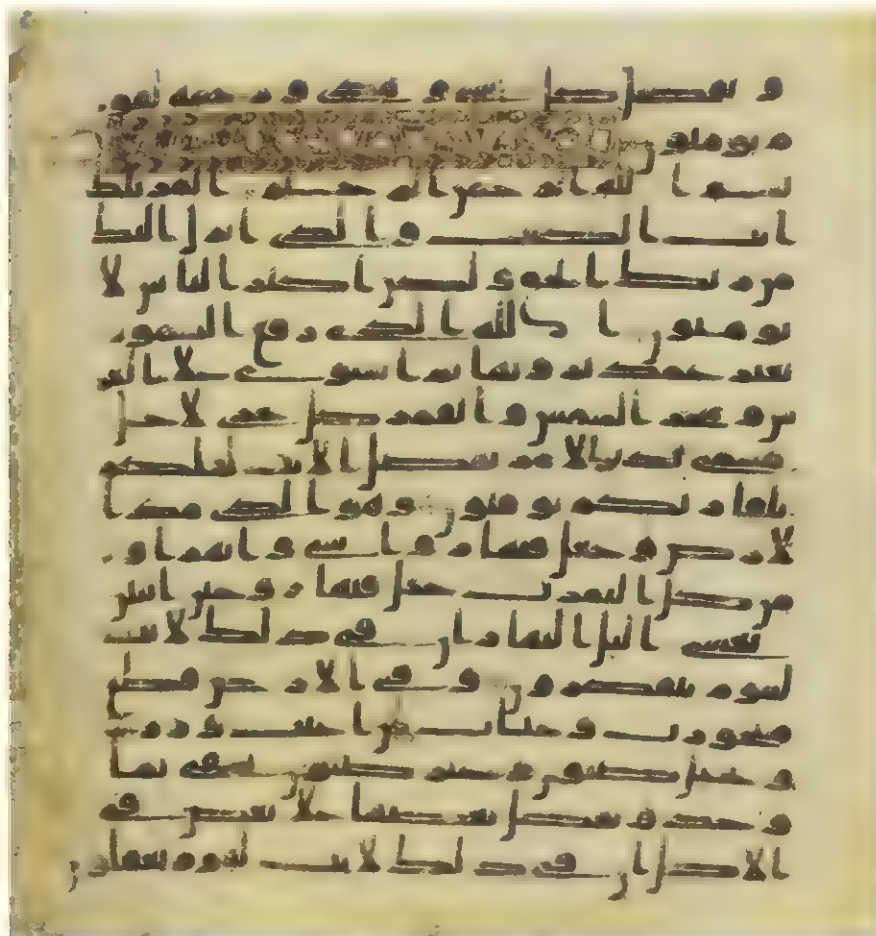 و تفصيل كل شيء وهدى ورحمة لقو
م يؤمنون
بسم الله الرحمن الرحيم المر تلك
ايت الكتب والذي انزل اليك
من ربك الحق ولكن اكثر الناس لا
يؤمنون الله الذي رفع السموت
بغير عمد ترونها ثم استوى على العر
ش وسخر الشمس والقمر كل يجري لاجل
مسمى يدبر الامر يفصل الايت لعلكم
بلقا ربكم توقنون وهو الذي مد ا
لارض وجعل فيها روسي وانهرا و
من كل الثمرت جعل فيها زوجين اثنين
يغشي اليل النهار ان في ذلك لايت
لقوم يتفكرون وفي الارض قطع
متجورت وجنت من اعنب وزرع
ونخيل صنون وغير صنون يسقى بما
وحد ونفضل بعضها على بعض في
الاكل ان في ذلك لايت لقوم يعقلون